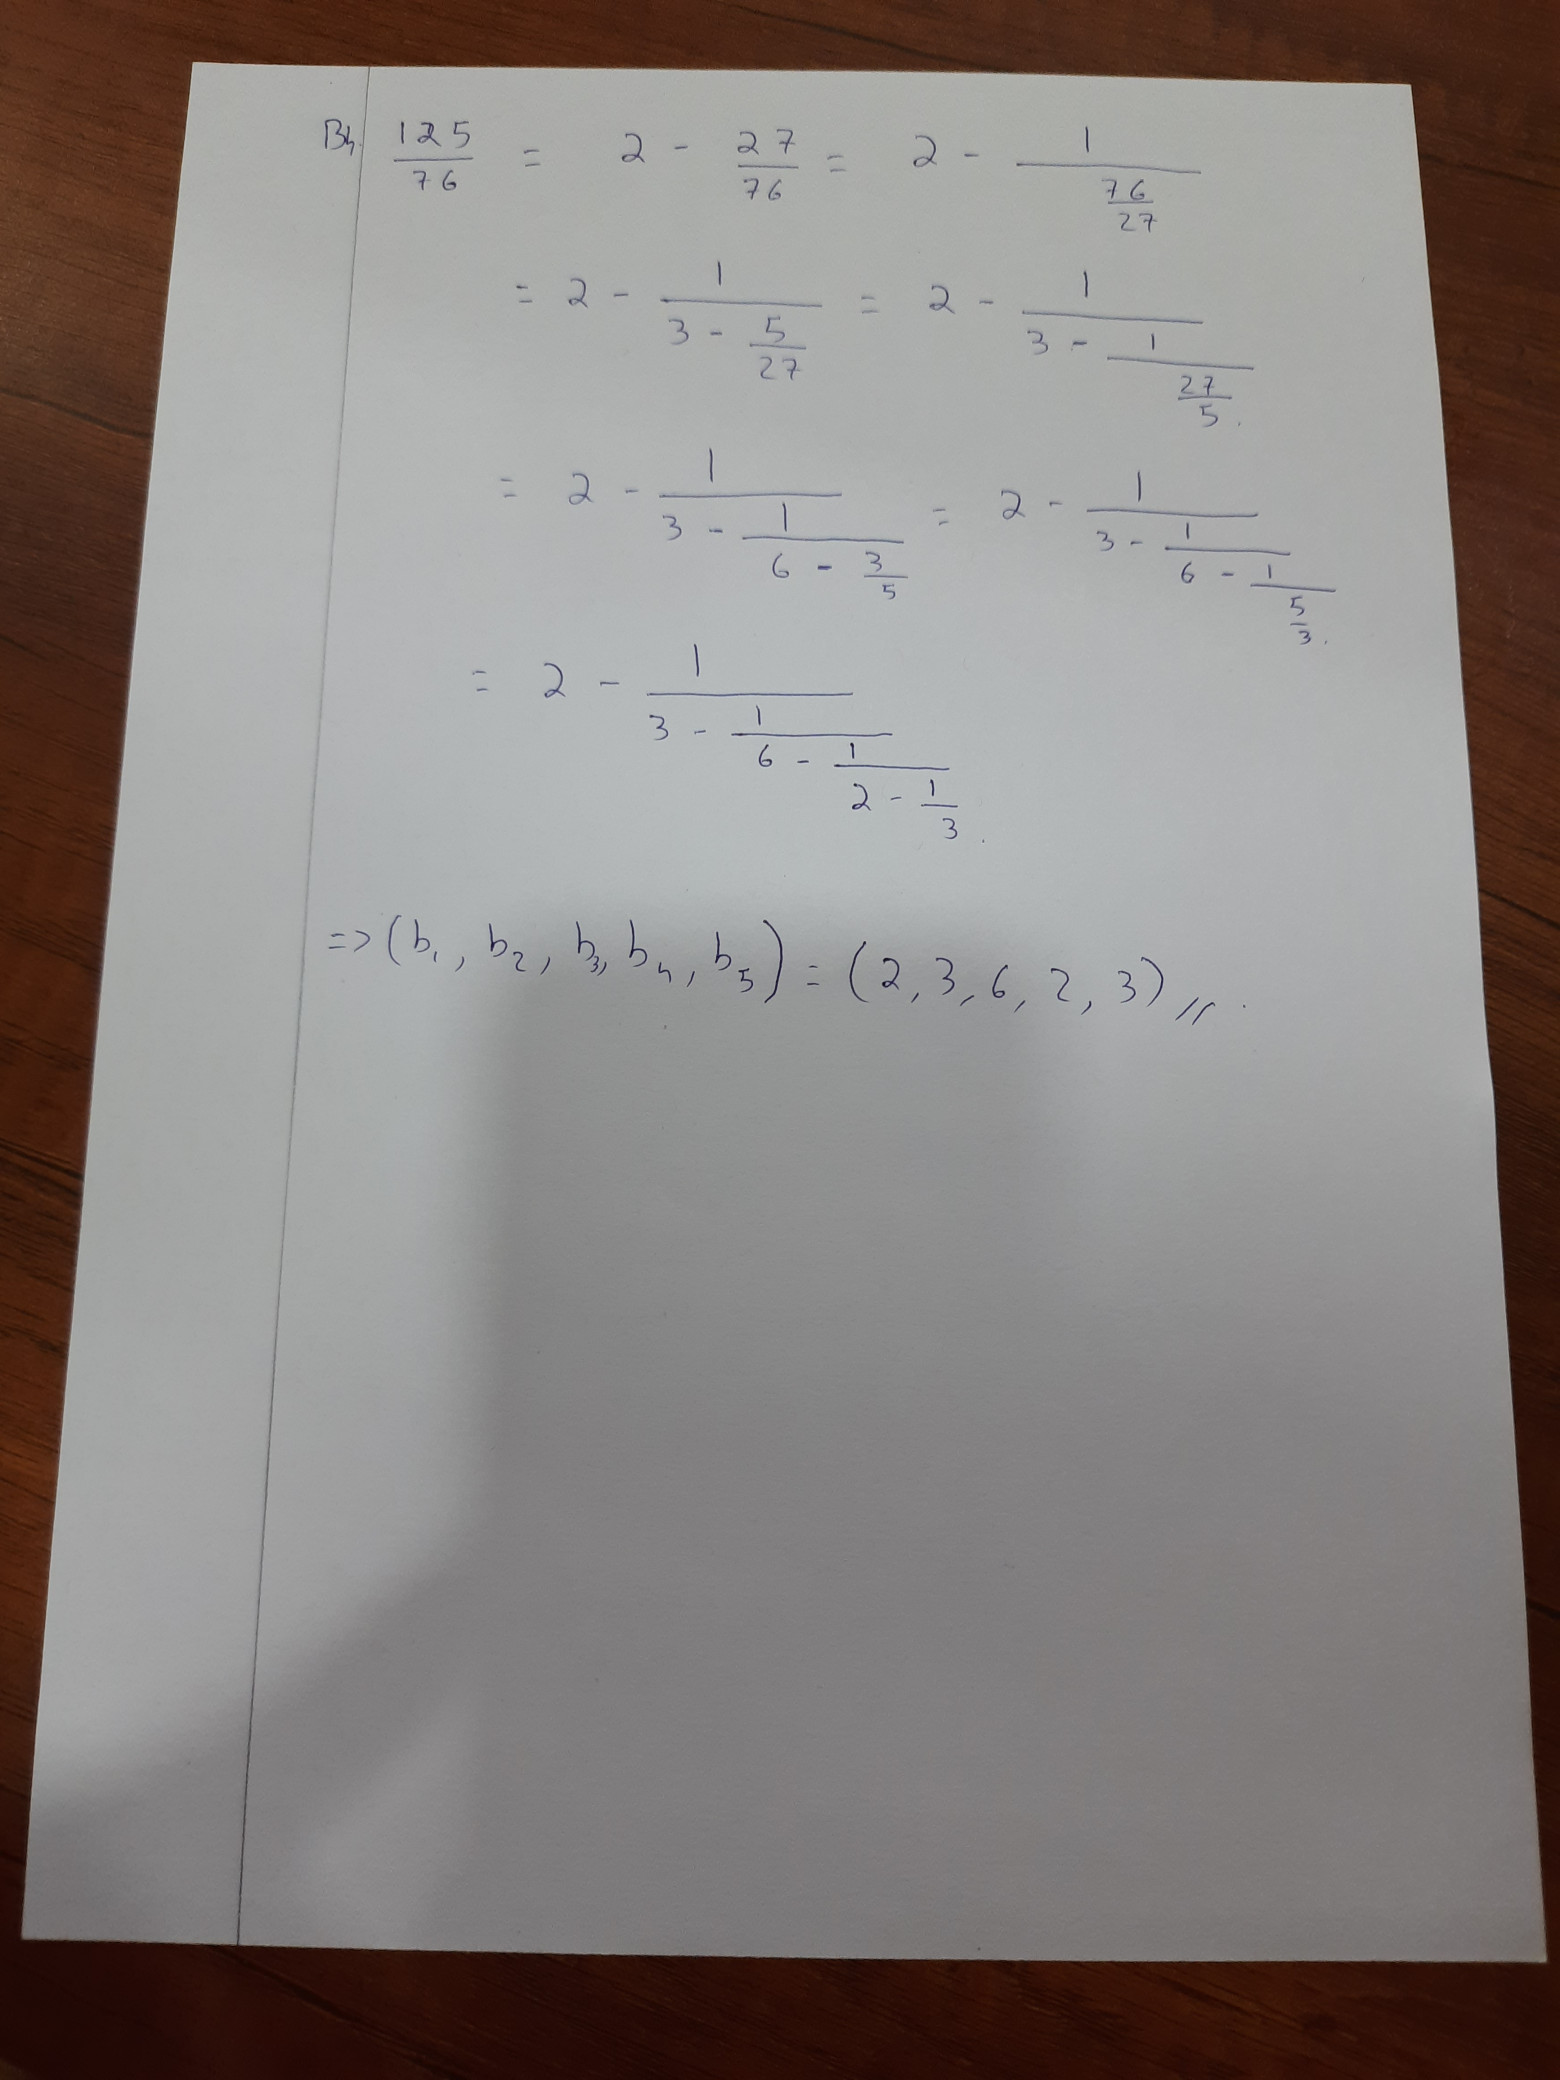 B4. 125/76 = 2 - 27/76 = 2 - 1/(76/27)
= 2 - 1/(3 - 5/27) = 2 - 1/(3 - 1/(27/5)).
= 2 - 1/(3 - 1/(6 - 3/5)) = 2 - 1/(3 - 1/(6 - 1/(5/3))).
= 2 - 1/(3 - 1/(6 - 1/(2 - 1/3))).
=> (b₁, b₂, b₃, b₄, b₅) = (2, 3, 6, 2, 3) //.